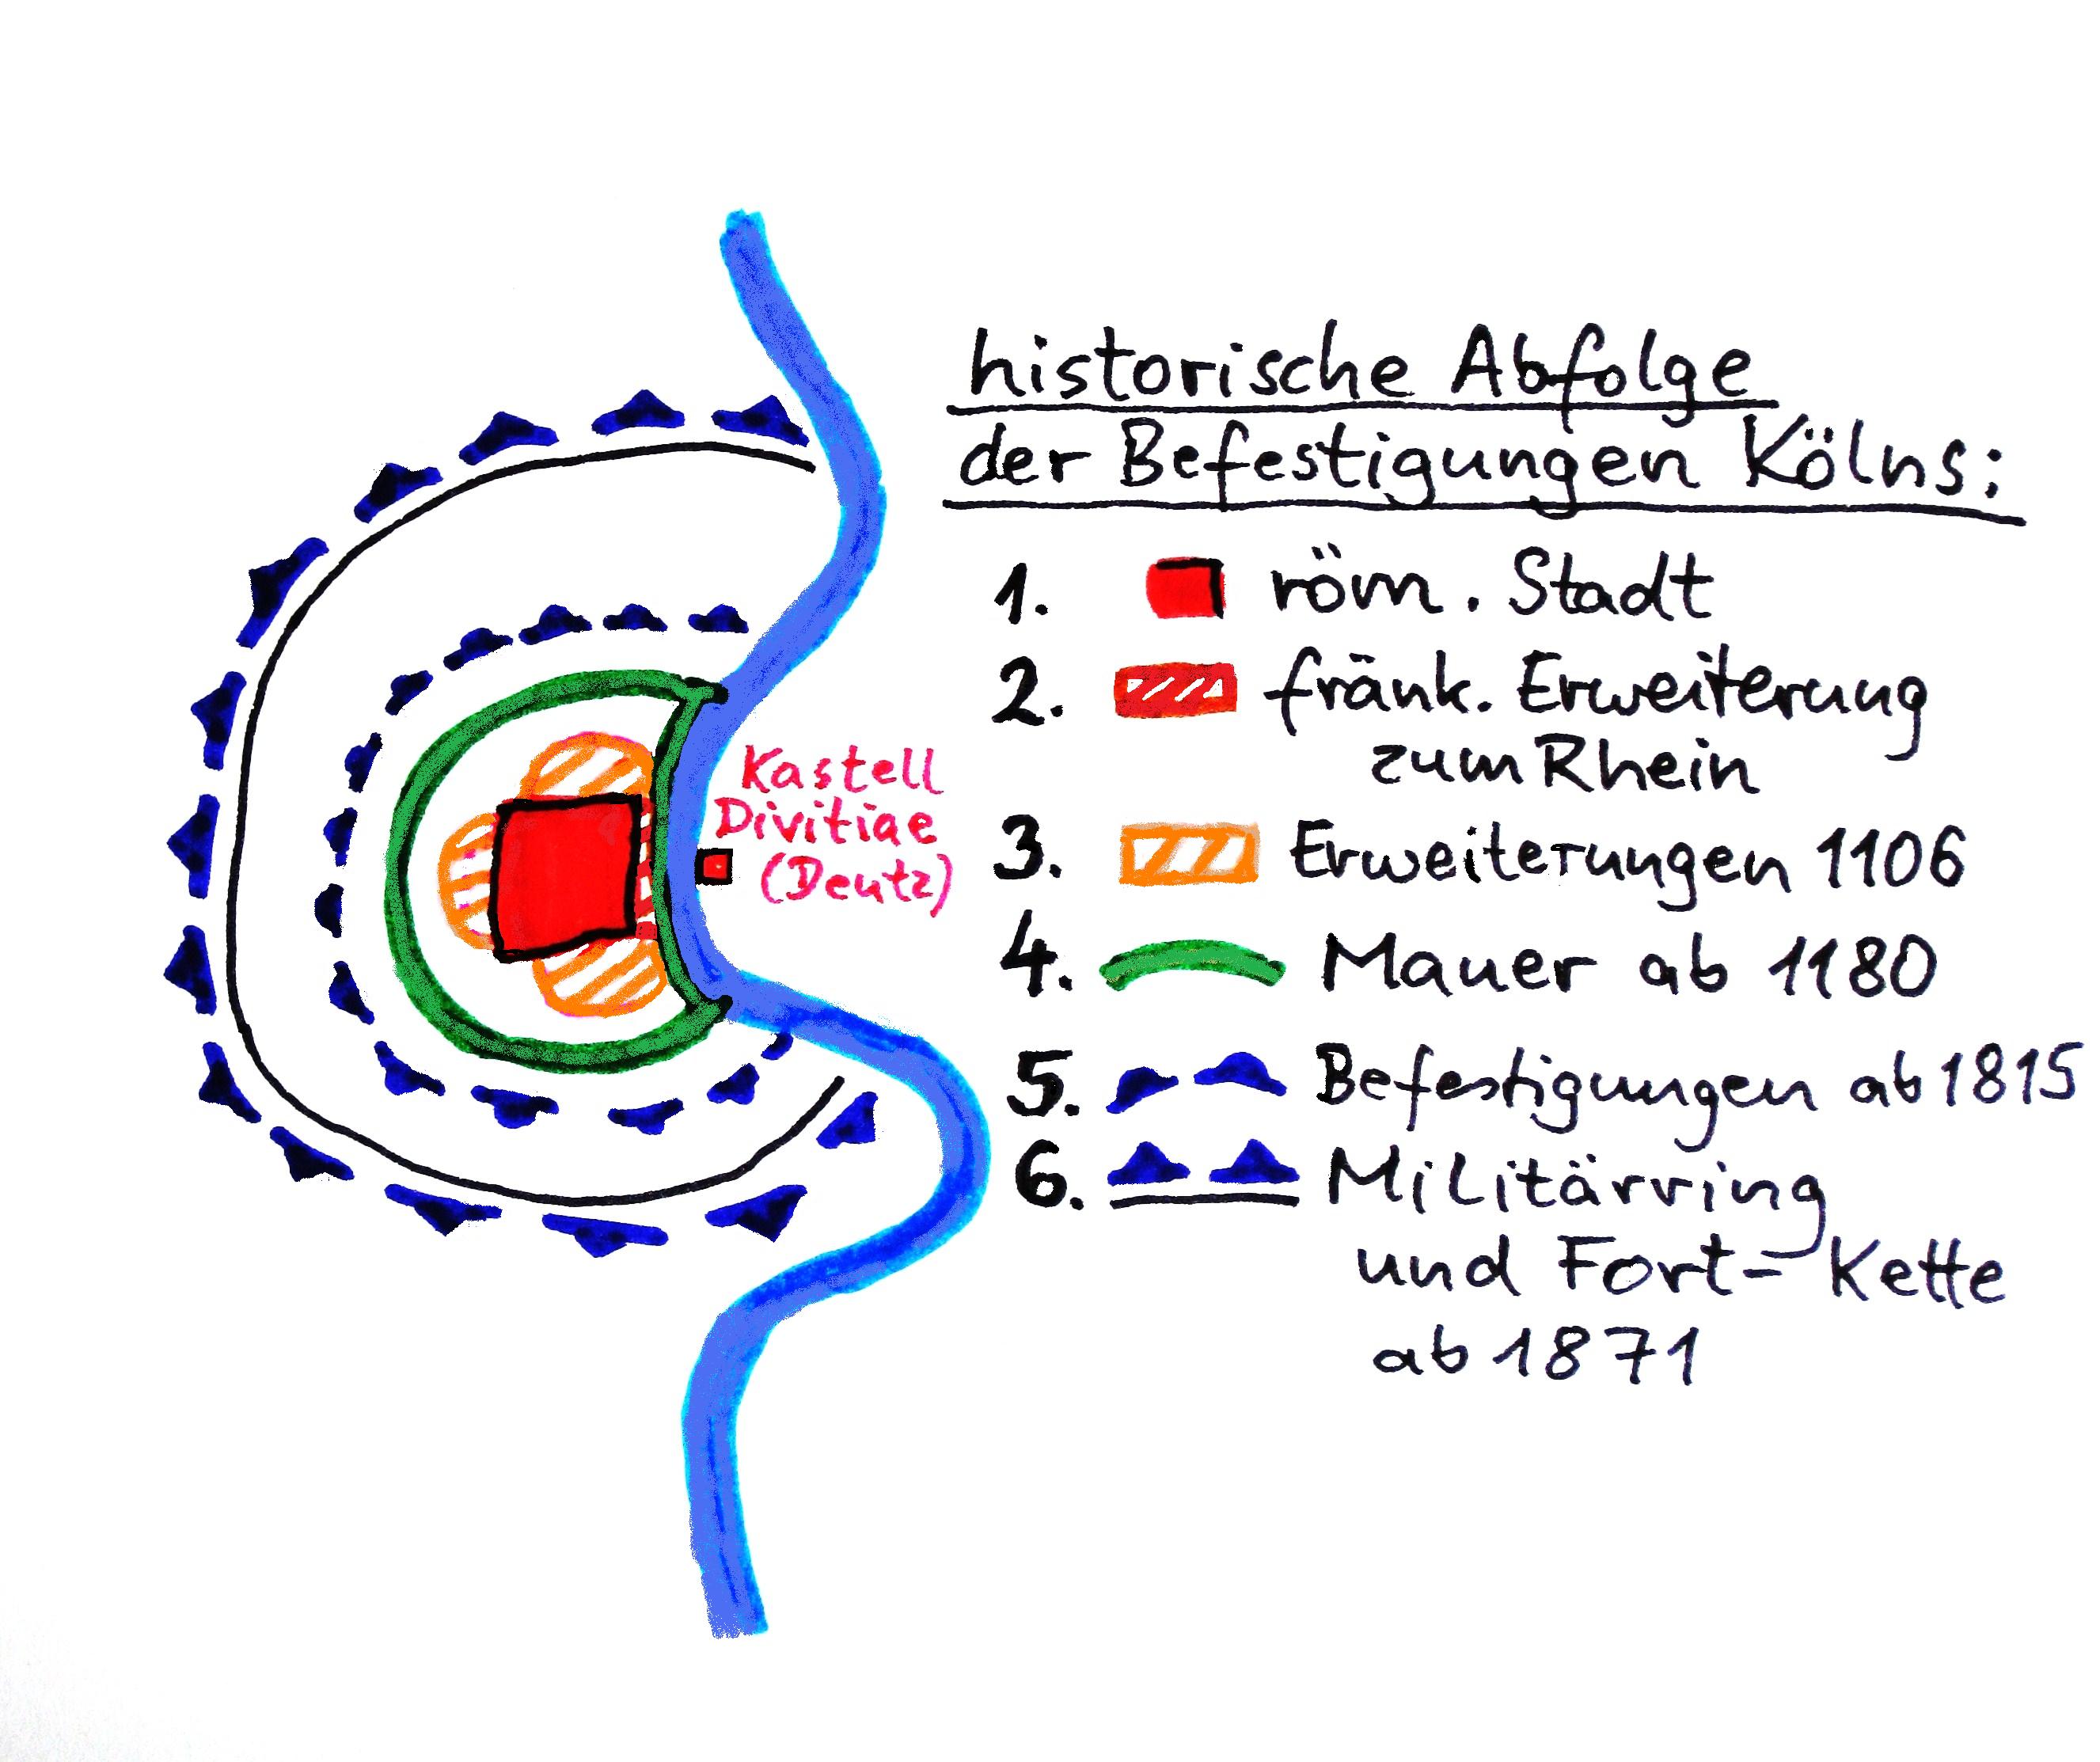 historische Abfolge
der Befestigungen Kölns:
1. röm. Stadt
2. fränk. Erweiterung
zum Rhein
3. Erweiterungen 1106
4. Mauer ab 1180
5. Befestigungen ab 1815
6. Militärring
und Fort-Kette
ab 1871
Kastell
Divitiae
(Deutz)